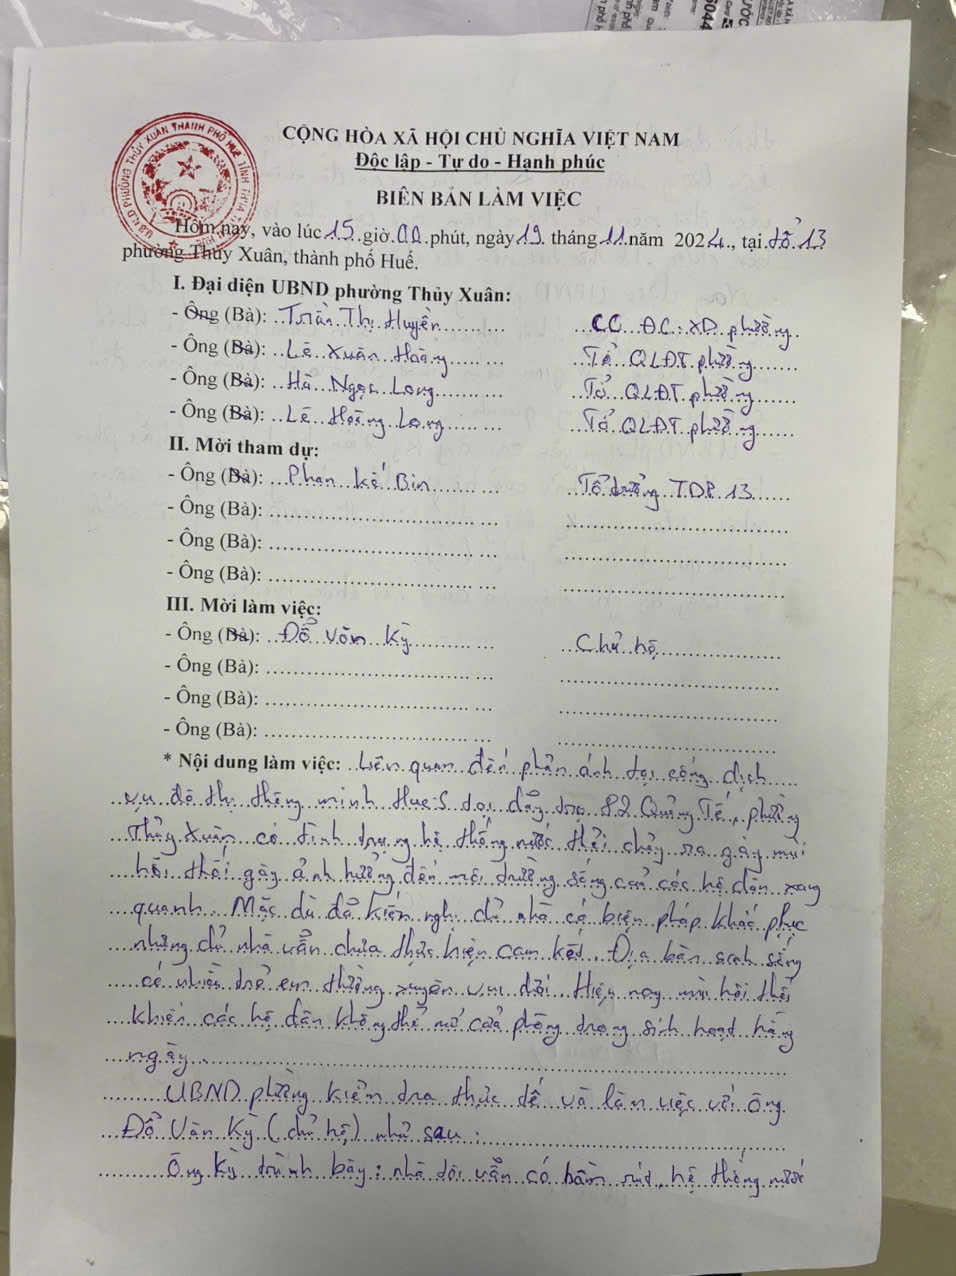 U.B.N.D PHƯỜNG THỦY XUÂN THÀNH PHỐ HUẾ TỈNH THỪA THIÊN HUẾ
CỘNG HÒA XÃ HỘI CHỦ NGHĨA VIỆT NAM
Độc lập - Tự do - Hạnh phúc
BIÊN BẢN LÀM VIỆC
Hôm nay, vào lúc 15 giờ 00 phút, ngày 19 tháng 11 năm 2024, tại tổ 13
phường Thủy Xuân, thành phố Huế.
I. Đại diện UBND phường Thủy Xuân:
- Ông (Bà): Trần Thị Huyền CC ĐC-XD phường
- Ông (Bà): Lê Xuân Hoàng Tổ QLĐT phường
- Ông (Bà): Hà Ngọc Long Tổ QLĐT phường
- Ông (Bà): Lê Hoàng Long Tổ QLĐT phường
II. Mời tham dự:
- Ông (Bà): Phan Kế Bin Tổ trưởng TDP 13
- Ông (Bà):
- Ông (Bà):
- Ông (Bà):
III. Mời làm việc:
- Ông (Bà): Đỗ Văn Kỳ Chủ hộ
- Ông (Bà):
- Ông (Bà):
- Ông (Bà):
* Nội dung làm việc: Liên quan đến phản ánh tại cổng dịch
vụ đô thị thông minh Hue-S tại dãy trọ 82 Quảng Tế, phường
Thủy Xuân có tình trạng hệ thống nước thải chảy ra gây mùi
hôi thối gây ảnh hưởng đến môi trường sống của các hộ dân xung
quanh. Mặc dù đã kiến nghị chủ nhà có biện pháp khắc phục
nhưng chủ nhà vẫn chưa thực hiện cam kết. Địa bàn sinh sống
có nhiều trẻ em thường xuyên vui chơi. Hiện nay mùi hôi thối
khiến các hộ dân không thể mở cửa phòng trong sinh hoạt hằng
ngày
UBND phường kiểm tra thực tế và làm việc với ông
Đỗ Văn Kỳ (chủ hộ) như sau:
Ông Kỳ trình bày: nhà tôi vẫn có hầm rút, hệ thống nước